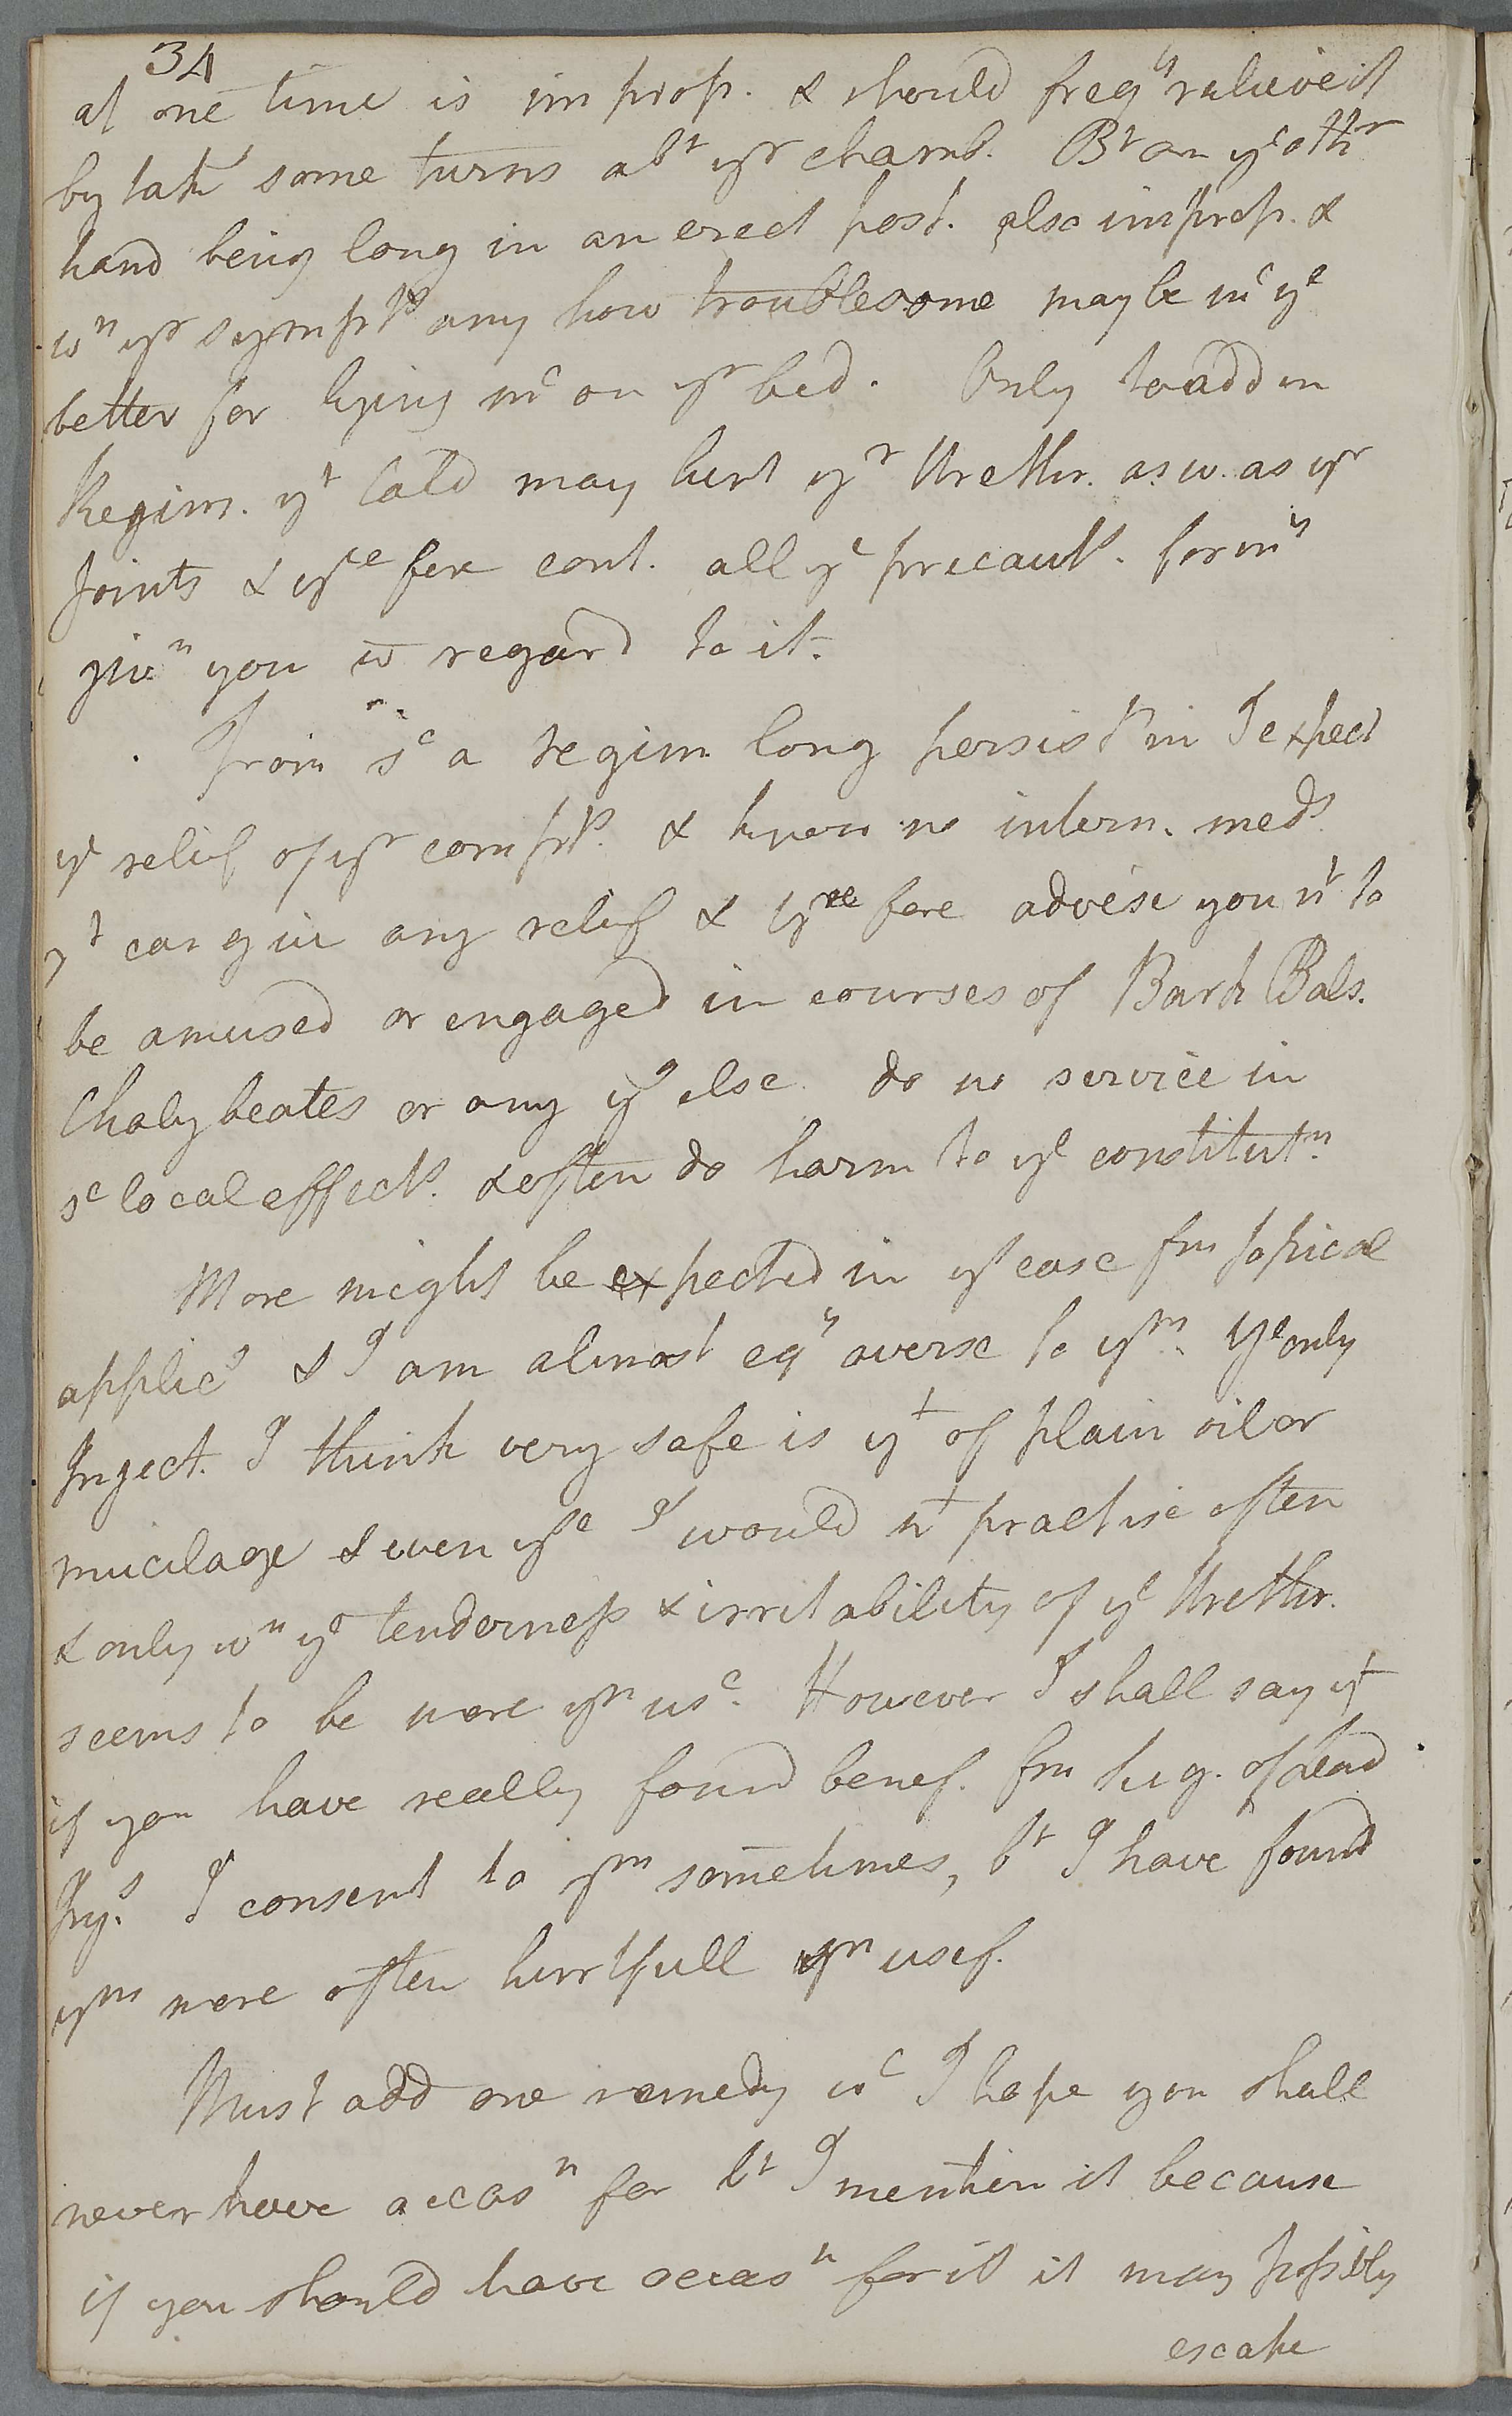 34
at one time is improp. & should freqy relieve it
by takg some turns abt yr chamb. Bt on ye othr
hand being long in an erect post. also improp. &
wn yr sympts any how troublesome may be mc ye
better for lying mc on yr bed. Only to add in
Regim. yt Cold may hurt yr Urethr. as w. as yr
Joints & yre fore cont. all ye precauts. formy
givn you w regard to it.
From sc a regim long persistd in I expect
ye relief of yr compts. & know no intern. meds
yt can give any relief & yre fore advise you nt to
be amused or engaged in courses of Bark Bals.
Chalybeates or any yg else do no service in
sc local effects. & often do harm to ye constitutn.
More might be expected in ys case fm topical
applics & I am almost eqy averse to ym. Ye only
Inject. I think very safe is yt of plain oil or
mucilage & even yse I would nt practise often
& only wn ye tenderness & irritability of ye Urethr.
seems to be more yn usl. However I shall say yt
if you have really found benef. fm Sug. of Lead
Injs. I consent to ym sometimes, bt I have found
ym more often hurtfull yn usef.
Must add one remedy wc I hope you shall
never have occasn for bt I mention it because
if you should have occasn for it it may possibly
escape